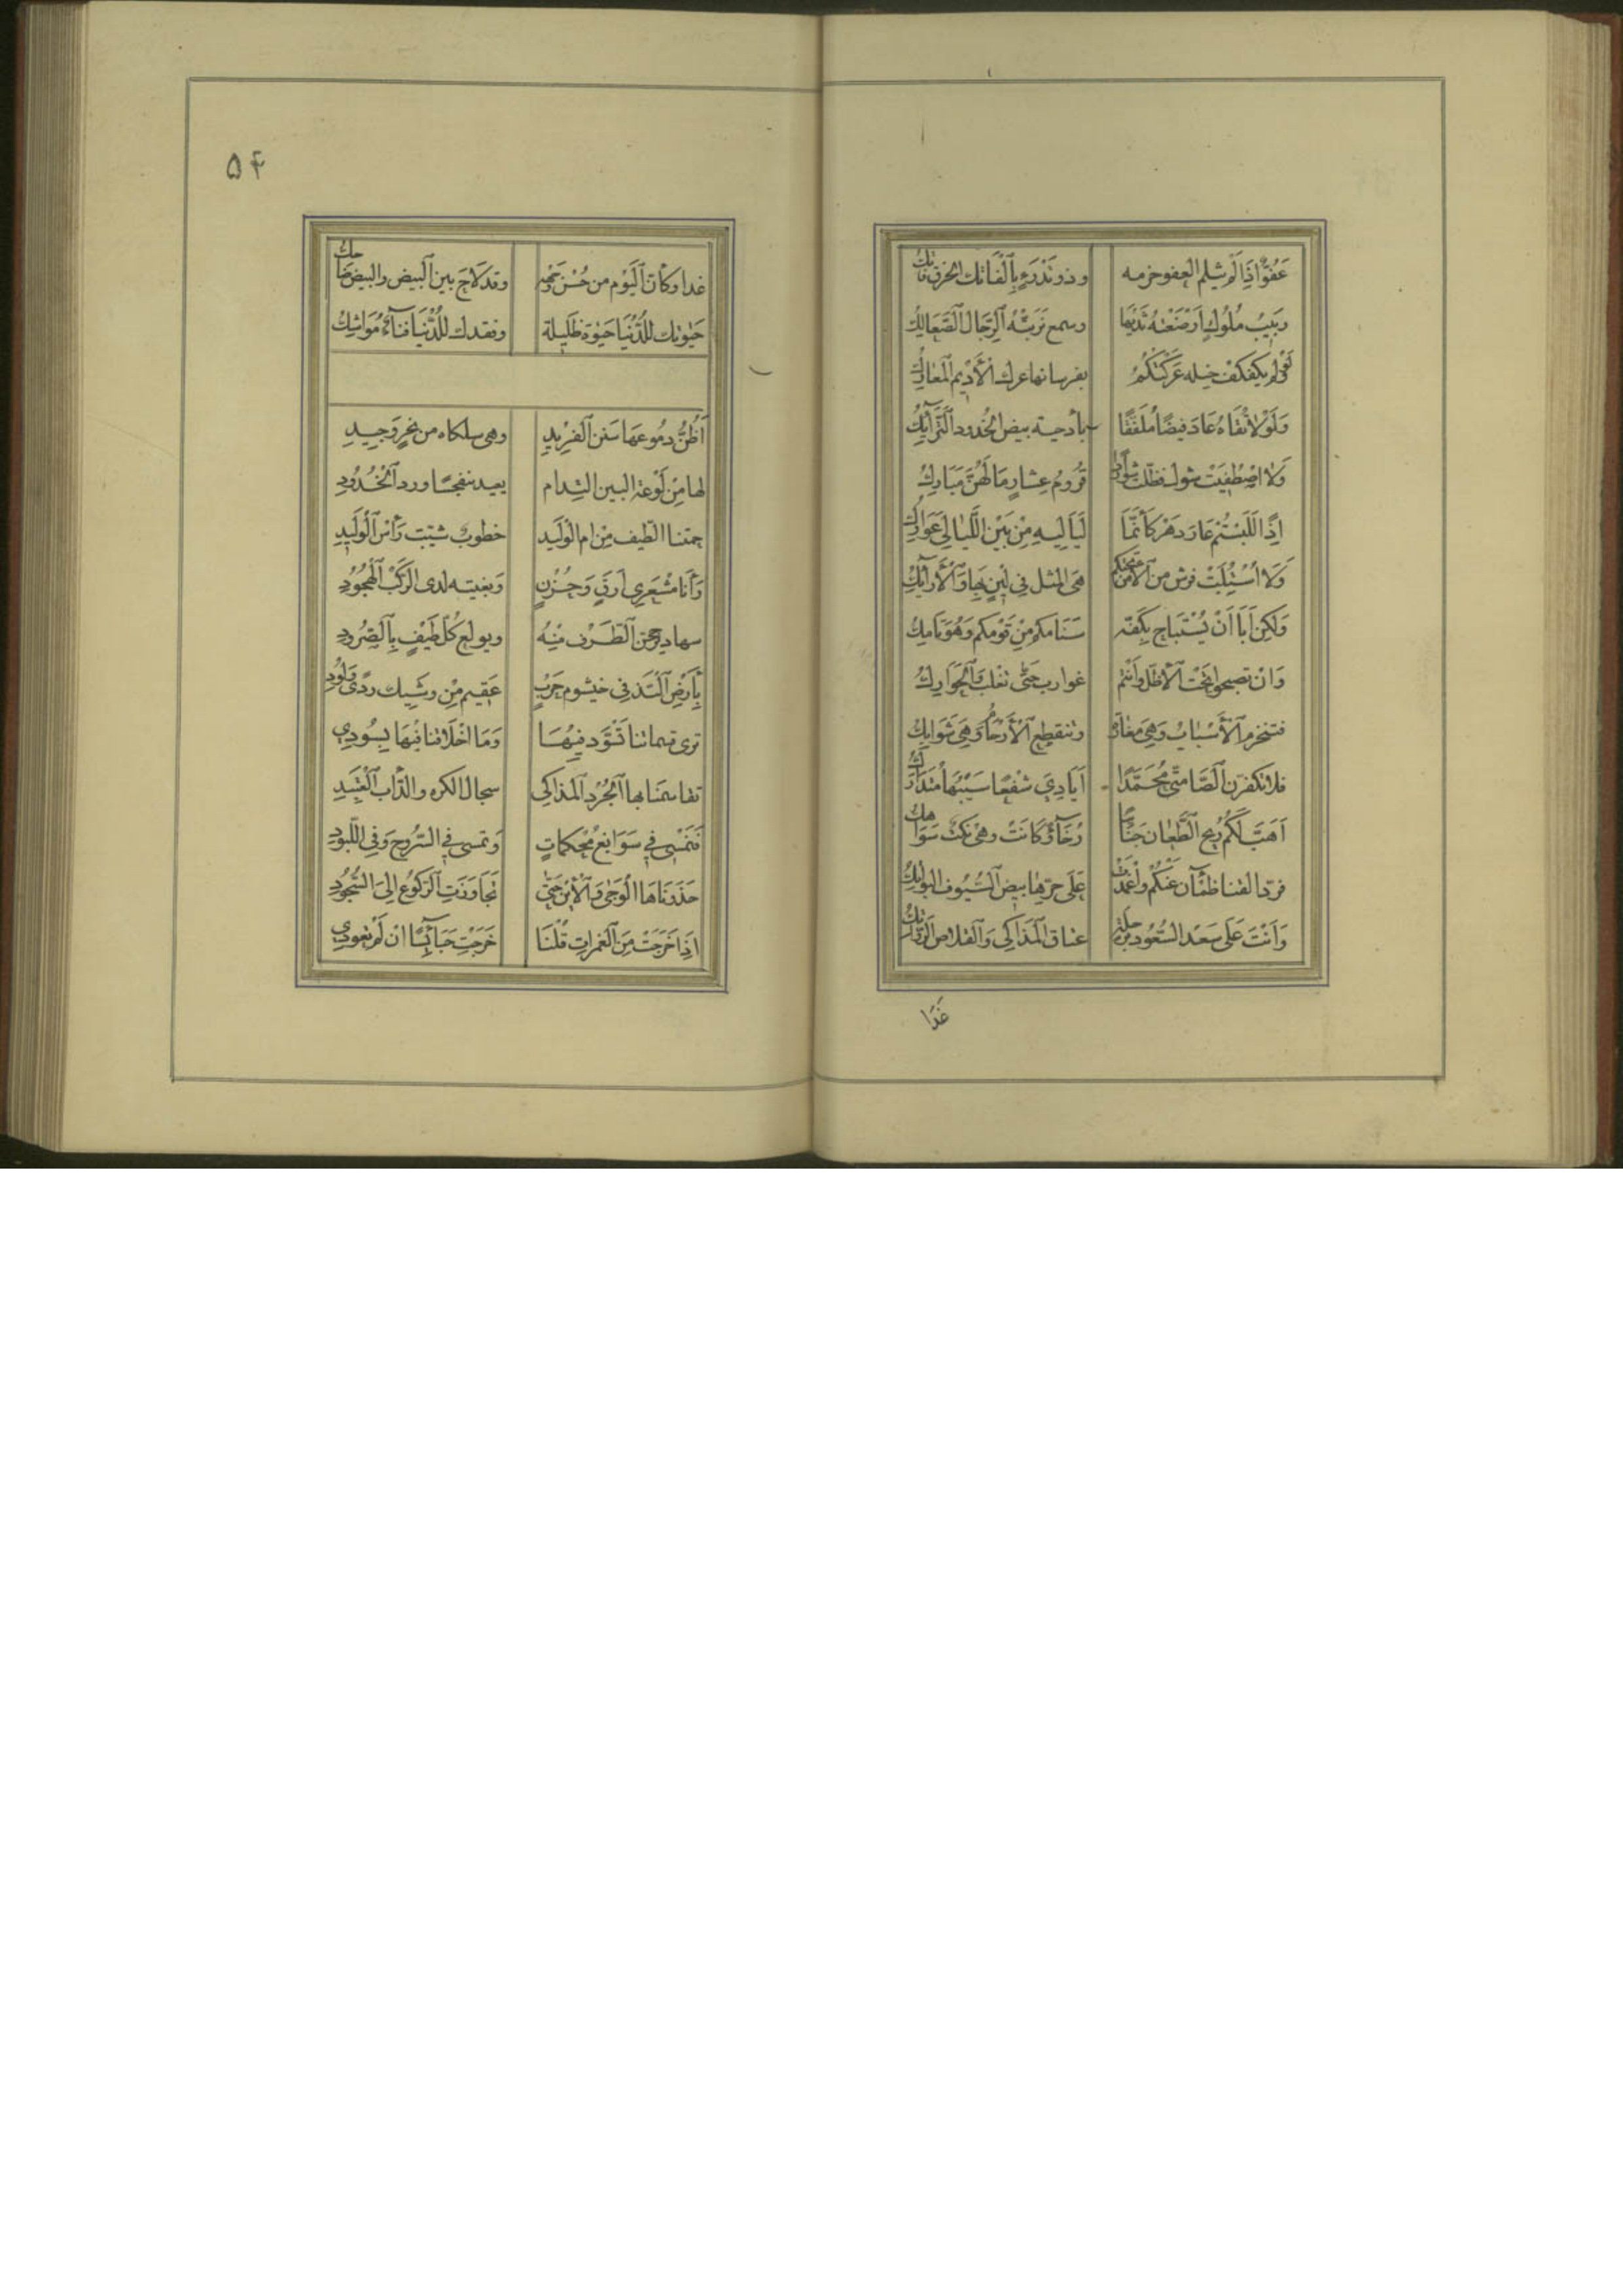 عَفُوٌّ اِذَا لَمْ يثلم العفو حزمه وذو تُدْرَءٍ بِالْفَاتك الخرق فاتكُ
رَبيبُ مُلُوكٍ اَرْضَعَتْهُ ثَدْيُهَا وسمع تَرَبَّتْهُ الرّجَال الصَّعَالِكُ
لم يكفكف خيله عَرَكَتْكُمُ بفرسانها عرك الأديم المعارك
وَلَوْلا تُقَاهُ عَادَ قيضًا مُفَلَّقًا بأدحيه بيض الخدود الترايك
وَلَا اصْطُفِيَتْ شول فظلت قُرُوم عِشَارٍ مَا لَهُنَّ مَبَارِكُ
اِذًا لَلَبِسْتُمْ عَارَ دَهْرٍ كَأَنَّمَا لَيَالِيهِ مِنْ بَيْنِ اللَّيَالي عَوَارِكُ
وَلَا اسْتُلِبَتْ فرش من الأمن تحتكم هِيَ المثل في لينٍ بها وَالْأَرَآئِكُ
وَلكِن أبَا اَنْ يُسْتَبَاح بِكَفّه سَنَامكم مِن قَوْمكم وَهُوَ تَامِكُ
وَان تصبحوا تحْت الأظل وانتم غوارب حَتّى الحَوَارِكُ
فتنخرم الأَسْبَابُ وَهِيَ مغارة وتنقطع الأَرْحَامُ وَهِيَ شَوَابِكُ
فلا تكفرن الصَّامتيّ مُحَمَّدًا اَيَادِيَ شفعًا سَيْبُهَا مُتَدَارِكُ
اَهَبَّ لَكُم ريح الطِّعَان جَنَائبًا رُخَآءً وَكَانَتْ وهي نكبٌ سَوَاهِكُ
فردّ القنا ظمْآن عَنْكُم وَاغْمَدَتْ عَلَى حرّها بيض السُّيُوف البواتِكُ
وَاَنْتَ عَلَى سَعْد السُّعُود برَحْلِهِ عناق المَذَاكي وَالقلاص الرواتك
غَدَا
۵۴
غدا وكأن اليَوْم من حُسْن وَجْهِه وقد لَاحَ بين البيض والبيض ضَاحِكُ
حَيٰوتك للدُّنْيَا حَيٰوة ظَلِيلة وفقدك للدُّنْيَا فَنَآءٌ مُوَاشِكُ
اَظُنُّ دمُوعهَا سَنَن الفَرِيدِ وهي سلكاه من نحرٍ وَجِيدِ
لها مِن لَوْعة البين التِدام يعيد بنفسجًا ورد الخُدُودِ
حمتنا الطّيف مِن ام الوَلِيد خطوبٌ شيّبت رَأْس الوَلِيدِ
وَأنا مُشعَري ارَقٍ وَحُزْنٍ وَبغيته لدى الرَكْب الهُجُودِ
سهاد يرجحن الطَّرف مِنْهُ ويولع كُلّ طَيْفٍ بالصُّدُودِ
بأرض البَذّ في خيشوم حَرْبٍ عَقِيم مِن وشِيك ردًى وَلُودِ
ترى قسماتنا تَسْوَدّ فِيهَا وَمَا اخْلَاقنا فِيهَا بِسُودِ
تقاسمنا بها الجُرْد المَذَاكي سجال الكره والدّأب العَتِيدِ
فنمْسي في سَوَابغ مُحْكمَاتٍ وَتمسي في السُّروح وَفي اللّبُودِ
حَذَوْنَاهَا الوَجَى وَالأَيْن حَتّى تَجَاوَزَتِ الرّكُوع اِلى السُّجُودِ
اِذَا خَرَجَتْ مِن الغَمَرَاتِ قُلْنَا خَرَجْتِ حَبَائِسًا ان لَمْ تعُودي